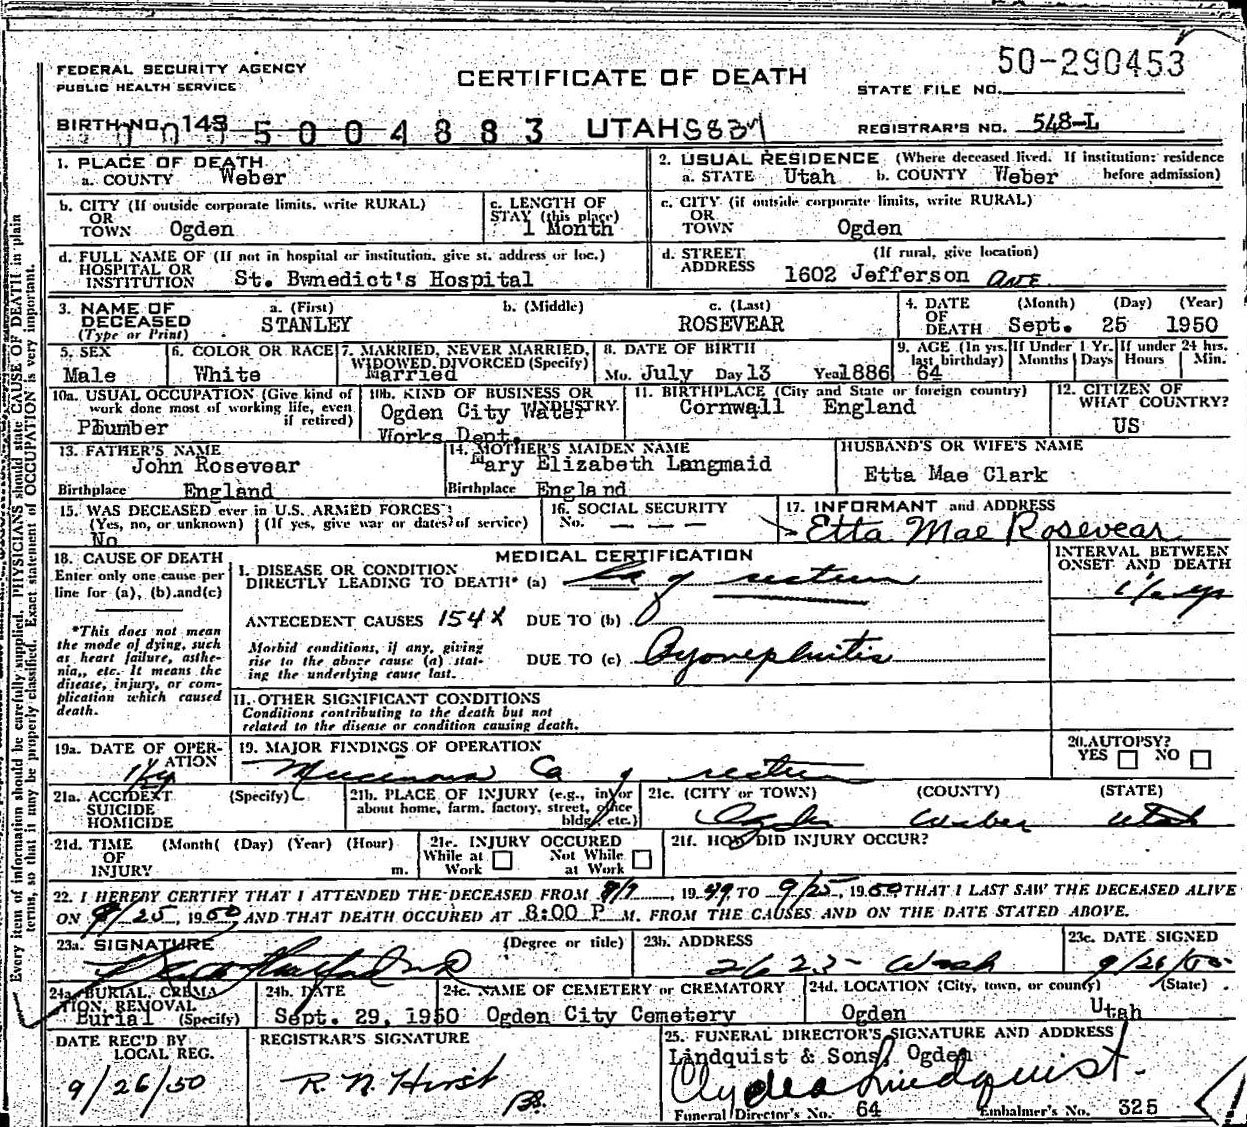 50-290453
FEDERAL SECURITY AGENCY
PUBLIC HEALTH SERVICE
CERTIFICATE OF DEATH
STATE FILE NO.
BIRTH NO. 143 5004883 UTAH
REGISTRAR'S NO. 548-L
1. PLACE OF DEATH
a. COUNTY Weber
2. USUAL RESIDENCE (Where deceased lived. If institution: residence before admission)
a. STATE Utah b. COUNTY Weber
b. CITY (If outside corporate limits, write RURAL)
OR
TOWN Ogden
c. LENGTH OF
STAY (this place)
1 Month
c. CITY (if outside corporate limits, write RURAL)
OR
TOWN Ogden
d. FULL NAME OF (If not in hospital or institution, give st. address or loc.)
HOSPITAL OR
INSTITUTION St. Bwnedict's Hospital
d. STREET (If rural, give location)
ADDRESS 1602 Jefferson Ave
3. NAME OF
DECEASED
(Type or Print)
a. (First) b. (Middle) c. (Last)
STANLEY ROSEVEAR
4. DATE (Month) (Day) (Year)
OF
DEATH Sept. 25 1950
5. SEX
Male
6. COLOR OR RACE
White
7. MARRIED, NEVER MARRIED,
WIDOWED, DIVORCED (Specify)
Married
8. DATE OF BIRTH
Mo. July Day 13 Year 1886
9. AGE (In yrs. last birthday)
64
If Under 1 Yr. If under 24 hrs.
Months Days Hours Min.
10a. USUAL OCCUPATION (Give kind of
work done most of working life, even
if retired)
Plumber
10b. KIND OF BUSINESS OR
INDUSTRY.
Ogden City Water
Works Dept.
11. BIRTHPLACE (City and State or foreign country)
Cornwall England
12. CITIZEN OF
WHAT COUNTRY?
US
13. FATHER'S NAME
John Rosevear
Birthplace England
14. MOTHER'S MAIDEN NAME
Mary Elizabeth Langmaid
Birthplace England
HUSBAND'S OR WIFE'S NAME
Etta Mae Clark
15. WAS DECEASED ever in U.S. ARMED FORCES?
(Yes, no, or unknown) (If yes, give war or dates of service)
No
16. SOCIAL SECURITY
No. — — —
17. INFORMANT and ADDRESS
Etta Mae Rosevear
18. CAUSE OF DEATH
Enter only one cause per
line for (a), (b) and (c)
*This does not mean
the mode of dying, such
as heart failure, asthe-
nia, etc. It means the
disease, injury, or com-
plication which caused
death.
MEDICAL CERTIFICATION
INTERVAL BETWEEN
ONSET AND DEATH
I. DISEASE OR CONDITION
DIRECTLY LEADING TO DEATH* (a) Ca of rectum
ANTECEDENT CAUSES 154X DUE TO (b)
Morbid conditions, if any, giving
rise to the above cause (a) stat-
ing the underlying cause last.
DUE TO (c) Pyonephritis
II. OTHER SIGNIFICANT CONDITIONS
Conditions contributing to the death but not
related to the disease or condition causing death.
19a. DATE OF OPER-
ATION
19. MAJOR FINDINGS OF OPERATION
Mucinous Ca of rectum
20. AUTOPSY?
YES NO
21a. ACCIDENT (Specify)
SUICIDE
HOMICIDE
21b. PLACE OF INJURY (e.g., in or
about home, farm, factory, street, office
bldg., etc.)
21c. (CITY or TOWN) (COUNTY) (STATE)
Ogden Weber Utah
21d. TIME (Month) (Day) (Year) (Hour)
OF
INJURY m.
21e. INJURY OCCURED
While at Work Not While at Work
21f. HOW DID INJURY OCCUR?
22. I HEREBY CERTIFY THAT I ATTENDED THE DECEASED FROM 1949 TO 9/25, 1950 THAT I LAST SAW THE DECEASED ALIVE
ON 9/25, 1950, AND THAT DEATH OCCURED AT 8:00 P M. FROM THE CAUSES AND ON THE DATE STATED ABOVE.
23a. SIGNATURE (Degree or title)
23b. ADDRESS
2623 Wash
23c. DATE SIGNED
9/26/50
24a. BURIAL, CREMA
TION, REMOVAL
Burial (Specify)
24b. DATE
Sept. 29, 1950
24c. NAME OF CEMETERY or CREMATORY
Ogden City Cemetery
24d. LOCATION (City, town, or county) (State)
Ogden Utah
DATE REC'D BY
LOCAL REG.
9/26/50
REGISTRAR'S SIGNATURE
R. N. Hirst
25. FUNERAL DIRECTOR'S SIGNATURE AND ADDRESS
Lindquist & Sons, Ogden
Clyde Lindquist
Funeral Director's No. 64 Embalmer's No. 325
Every item of information should be carefully supplied. PHYSICIANS should state CAUSE OF DEATH in plain
terms, so that it may be properly classified. Exact statement of OCCUPATION is very important.